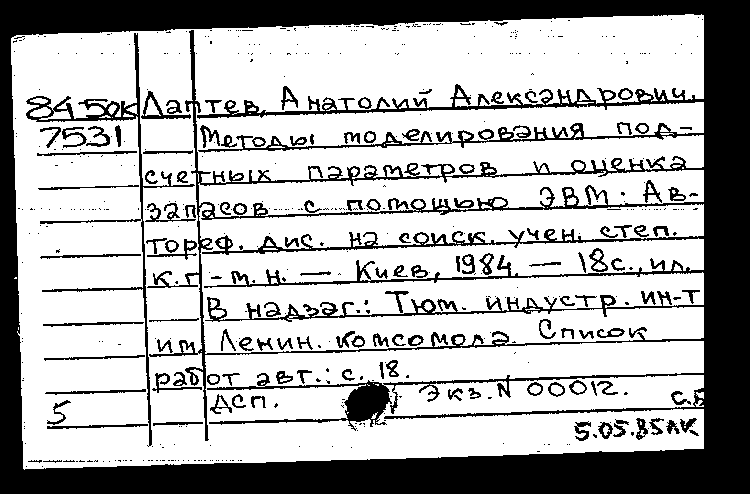 8450К Лаптев, Анатолий Александрович.
7531 Методы моделирования под-
счетных параметров и оценка
запасов с помощью ЭВМ: Ав-
тореф. дис. на соиск. учен. степ.
к.г.-м.н. — Киев, 1984. — 18с., ил.
В надзаг.: Тюм. индустр. ин-т
им. Ленин. комсомола. Список
работ авт.: с. 18.
ДСП. Экз. N 00012. С.Б
5
5.05.85ЛК